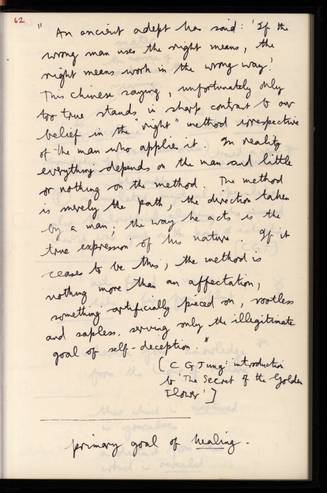 62
" An ancient adept has said: 'If the
wrong man uses the right means, the
right means work in the wrong way.'
This Chinese saying, unfortunately only
too true stands in sharp contrast to our
belief in the "right" method irrespective
of the man who applies it. In reality
everything depends on the man and little
or nothing on the method. The method
is merely the path, the direction taken
by a man; the way he acts is the
true expression of his nature. If it
ceases to be this, the method is
nothing more than an affectation,
something artificially pieced on, rootless
and sapless, serving only the illegitimate
goal of self-deception."
[C G Jung: introduction
to 'The Secret of the Golden
Flower']
primary goal of healing.